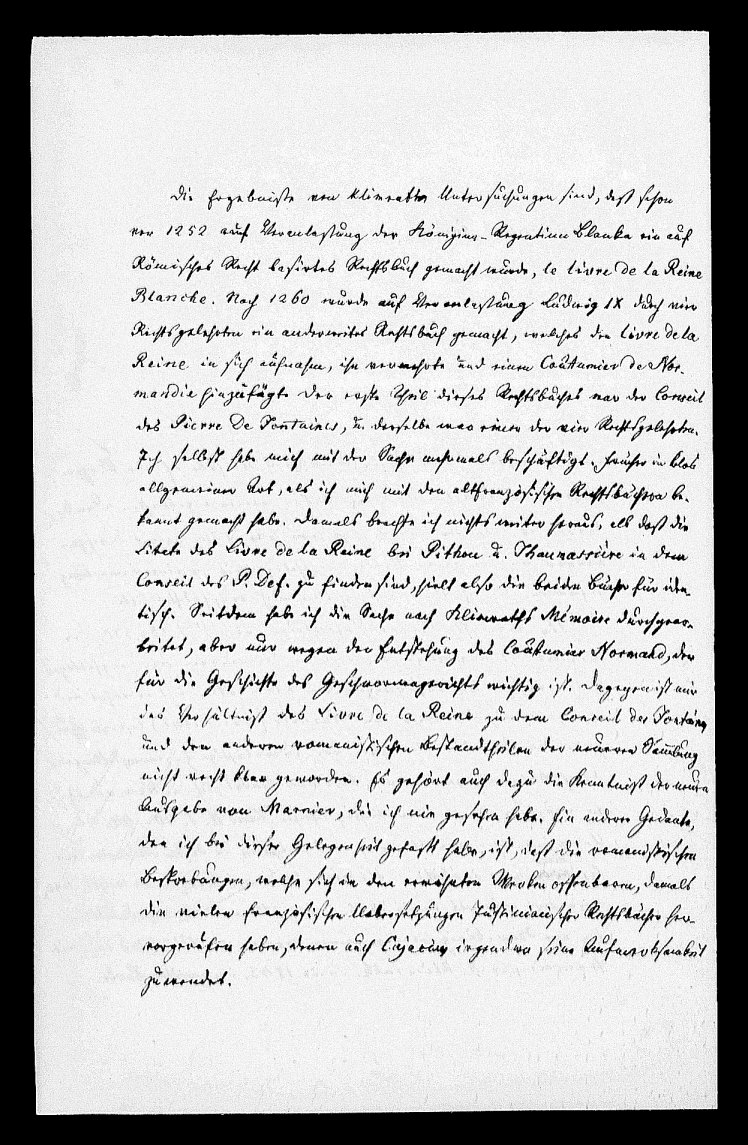 Die Ergebnisse von Klimraths Untersuchungen sind, daß schon
vor 1252 auf Veranlassung der Königinn-Regentinn Blanka ein auf
Römisches Recht basirtes Rechtsbuch gemacht wurde, le livre de la Reine
Blanche. Nach 1260 wurde auf Veranlassung Ludwig IX durch vier
Rechtsgelehrten ein anderweites Rechtsbuch gemacht, welches den livre de la
Reine in sich aufnahm, ihn vermehrte und einen Coûtumier de Nor-
mandie hinzufügte. Der erste Theil dieses Rechtsbuches war der Conseil
des Pierre De Fontaines, u. derselbe war einer der vier Rechtsgelehrten.
Ich selbst habe mich mit der Sache mehrmals beschäftigt. Früher in blos
allgemeiner Art, als ich mich mit den altfranzösischen Rechtsbüchern be-
kannt gemacht habe. Damals brachte ich nichts weiter heraus, als daß die
Citate des Livre de la Reine bei Pithou u. Thaumassière in dem
Conseil des P. Def. zu finden sind, hielt also die beiden Bücher für iden-
tisch. Seitdem habe ich die Sache nach Klimraths Mémoire durchgear-
beitet, aber nur wegen der Entstehung des Coûtumier Normand, der
für die Geschichte des Geschwornengerichts wichtig ist. Dagegen ist mir
das Verhältniß des Livre de la Reine zu dem Conseil des Fontaines
und den anderen romanistischen Bestandtheilen der neueren Sammlung
nicht recht klar geworden. Es gehört auch dazu die Kenntniß der neuen
Ausgabe von Marnier, die ich nie gesehen habe. Ein anderer Gedanke,
den ich bei dieser Gelegenheit gefaßt habe, ist, daß die romanistischen
Bestrebungen, welche sich in den erwähnten Werken offenbaren, damals
die vielen französischen Uebersetzungen Justinianischer Rechtsbücher her-
vorgerufen haben, denen auch Cujacius irgendwo seine Aufmerksamkeit
zuwendet.